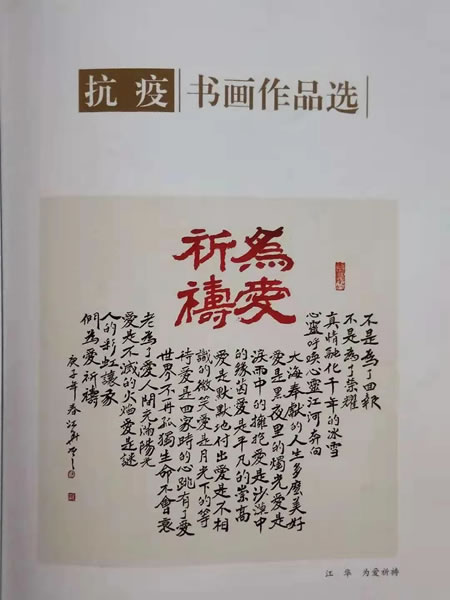 抗疫 书画作品选
為愛
祈禱
不是為了回報
不是為了榮耀
真情融化千年的冰雪
心靈呼喚心靈江河奔向
大海奉獻的人生多麼美好
愛是黑夜里的燭光愛是
淚雨中的擁抱愛是沙漠中
的綠茵愛是平凡的崇高
愛是默默地付出愛是不相
識的微笑愛是月光下的等
待愛是回家時的心跳有了愛
世界不再孤獨生命不會衰
老為了愛人間充滿陽光
愛是不滅的火焰愛是謎
人的彩虹讓我
們為愛祈禱
庚子年春江華
江 华 为爱祈祷